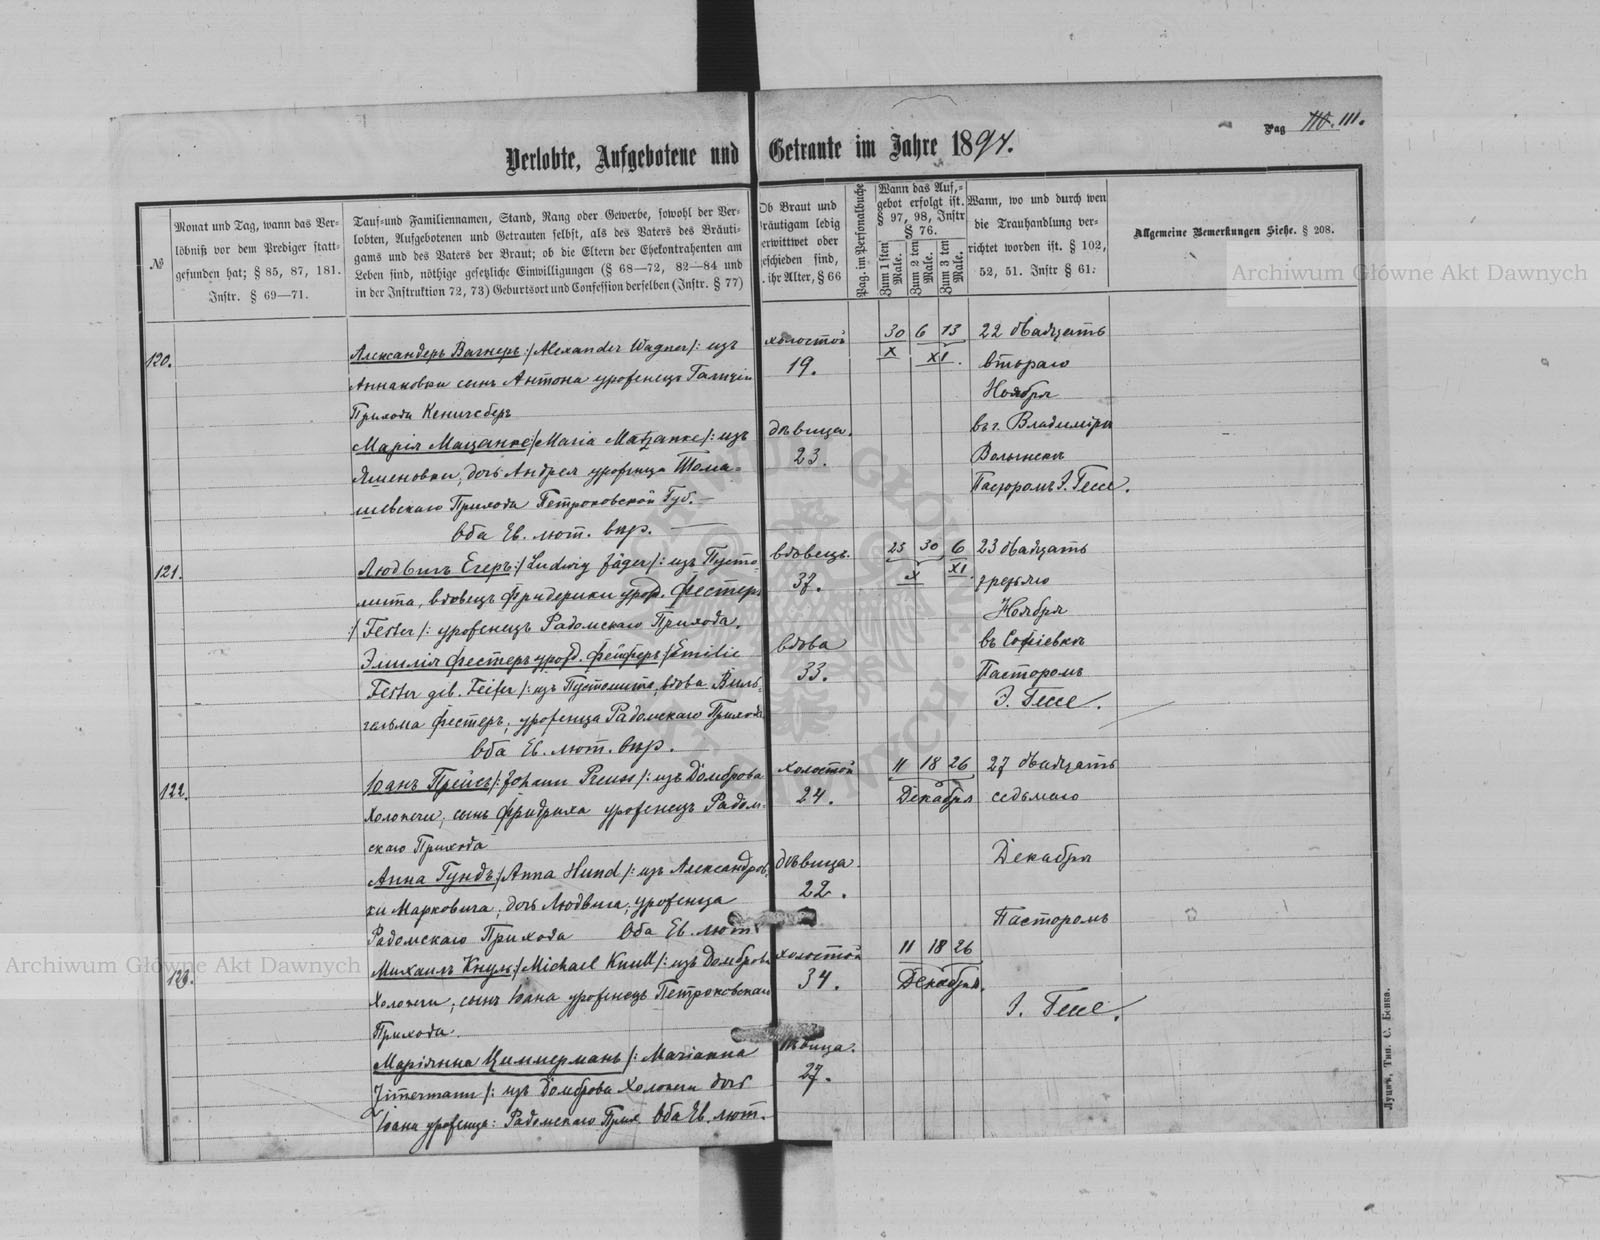 Pag 110. 111.
Verlobte, Aufgebotene und Getraute im Jahre 1894.
№
Monat und Tag, wann das Ver-
löbniß vor dem Prediger statt-
gefunden hat; § 85, 87, 181.
Instr. § 69—71.
Tauf-und Familiennamen, Stand, Rang oder Gewerbe, sowohl der Ver-
lobten, Aufgebotenen und Getrauten selbst, als des Vaters des Bräuti-
gams und des Vaters der Braut; ob die Eltern der Ehekontrahenten am
Leben sind, nöthige gesetzliche Einwilligungen (§ 68—72, 82—84 und
in der Instruktion 72, 73) Geburtsort und Confession derselben (Instr. § 77)
Ob Braut und
Bräutigam ledig
verwittwet oder
geschieden sind,
ihr Alter, § 66
Pag. im Personalbuche
Wann das Auf-
gebot erfolgt ist.
§ 97, 98, Instr
§ 76.
Zum 1 sten Male.
Zum 2 ten Male.
Zum 3 ten Male.
Wann, wo und durch wen
die Trauhandlung ver-
richtet worden ist. § 102,
52, 51. Instr § 61.
Allgemeine Bemerkungen Siehe. § 208.
Archiwum Główne Akt Dawnych
120.
Александеръ Вагнеръ :/ Alexander Wagner /: изъ
Аннаковки сынъ Антона уроженецъ Галиціи
Прихода Кенигсберъ
Марія Мацанке :/ Maria Matzanke /: изъ
Яшеновки, дочь Андрея уроженца Тома-
шевскаго Прихода Петроковской Губ. —
Оба Ев. лют. впр. —
холостой
19.
дѣвица.
23.
30 6 13
X XI.
22 двадцать
втораго
Ноября
въ г. Владимірѣ
Волынскѣ
Пасторомъ І. Гессе.
121.
Людвигъ Егеръ :/ Ludwig Jäger /: изъ Пусто-
мита, вдовецъ Фридерики урожд. Фестеръ
:/ Fester /: уроженецъ Радомскаго Прихода.
Эмилія Фестеръ урожд. Фейферъ :/ Emilie
Fester geb. Feifer /: изъ Пустомита, вдова Виль-
гельма Фестеръ, уроженца Радомскаго Прихода
Оба Ев. лют. впр. —
вдовецъ.
37.
вдова
33.
23 30 6
X XI.
23 двадцать
третьяго
Ноября
въ Софіевкѣ
Пасторомъ
І. Гессе.
122.
Іоанъ Прейсъ :/ Johann Preuss /: изъ Домброва
Холопечи, сынъ Фридриха уроженецъ Радом-
скаго Прихода
Анна Гундъ :/ Anna Hund /: изъ Александров-
ки Марковича, дочь Людвига, уроженца
Радомскаго Прихода Оба Ев. лют.
холостой
24.
дѣвица.
22.
11 18 26
Декабря
27 двадцать
седьмаго
Декабря
Пасторомъ
І. Гессе.
Archiwum Główne Akt Dawnych
123.
Михаилъ Кнуль :/ Michael Knull /: изъ Домброва
Холопечи, сынъ Іоана уроженецъ Петроковскаго
Прихода.
Маріянна Циммерманъ /: Marianna
Zimermann /: изъ Домброва Холопечи дочь
Іоана уроженца: Радомскаго Прих Оба Ев. лют.
холостой
34.
дѣвица.
27.
11 18 26
Декабря.
Луцкъ, Тип. С. Бонка.